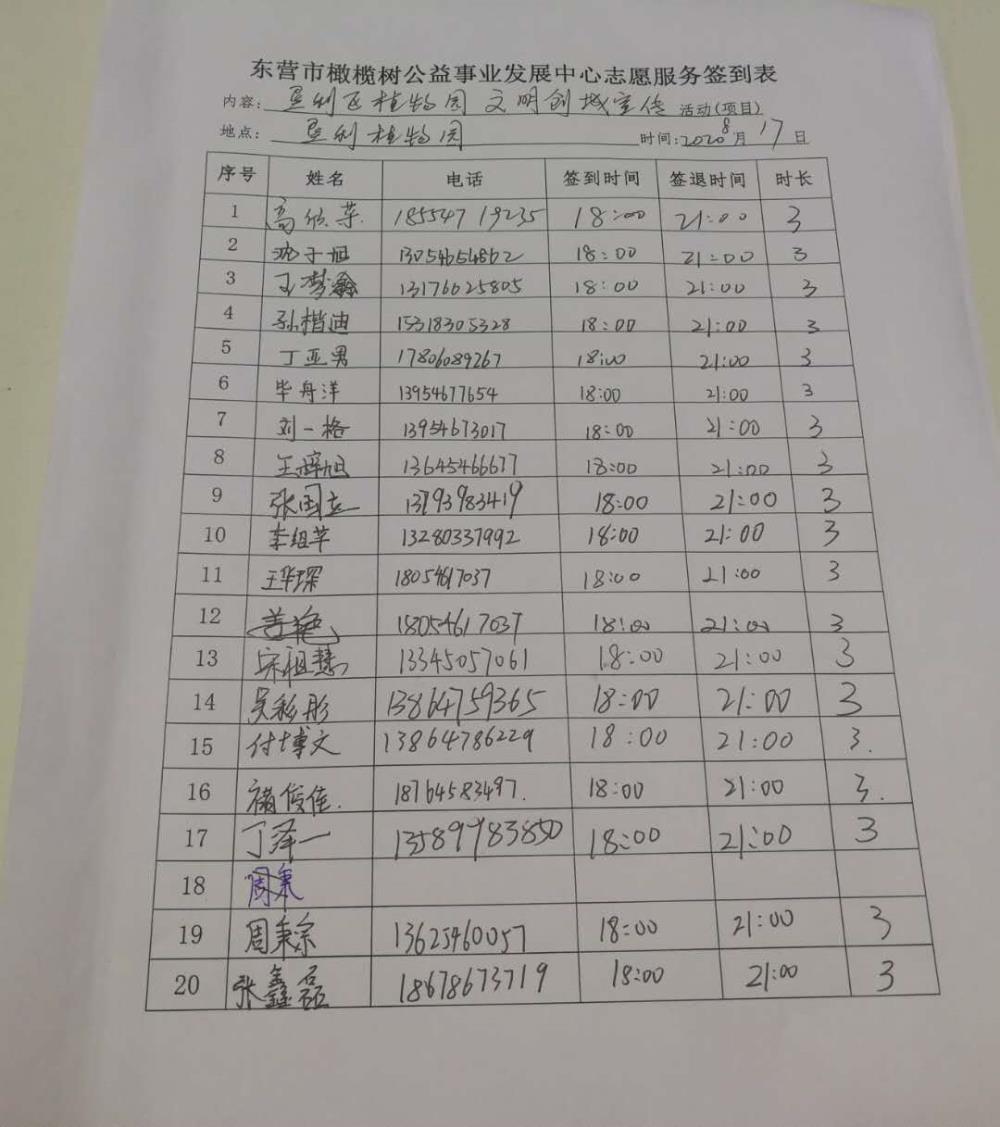 东营市橄榄树公益事业发展中心志愿服务签到表
内容: 垦利区植物园 文明创城宣传 活动(项目)
地点: 垦利植物园 时间:2020 8月17日
序号 姓名 电话 签到时间 签退时间 时长
1 高欣苹. 18554719235 18:00 21:00 3
2 子旭 13054654862 18:00 21:00 3
3 王梦 13176025805 18:00 21:00 3
4 孙楷迪 15318305328 18:00 21:00 3
5 丁亚男 17806089267 18:00 21:00 3
6 毕舟洋 13954677654 18:00 21:00 3
7 刘一格 13954673017 18:00 21:00 3
8 王梓旭 13645466677 18:00 21:00 3
9 张国立 13793983419 18:00 21:00 3
10 李组苹 13280337992 18:00 21:00 3
11 王华琛 18054617037 18:00 21:00 3
12 18054617037 18:00 21:00 3
13 宋祖慧 13345057061 18:00 21:00 3
14 吴彩彤 13864759365 18:00 21:00 3
15 付博文 13864786229 18:00 21:00 3.
16 俊佳. 18764583497. 18:00 21:00 3.
17 丁泽一 13589983850 18:00 21:00 3
18 周秉
19 周秉宗 13625460057 18:00 21:00 3
20 张鑫磊 18678673719 18:00 21:00 3